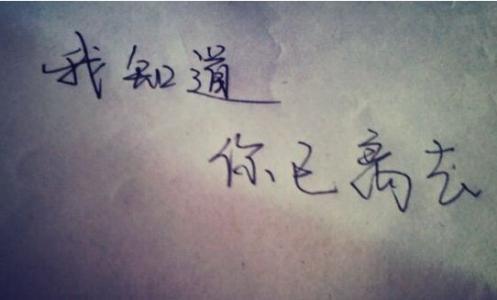 我知道
你已离去